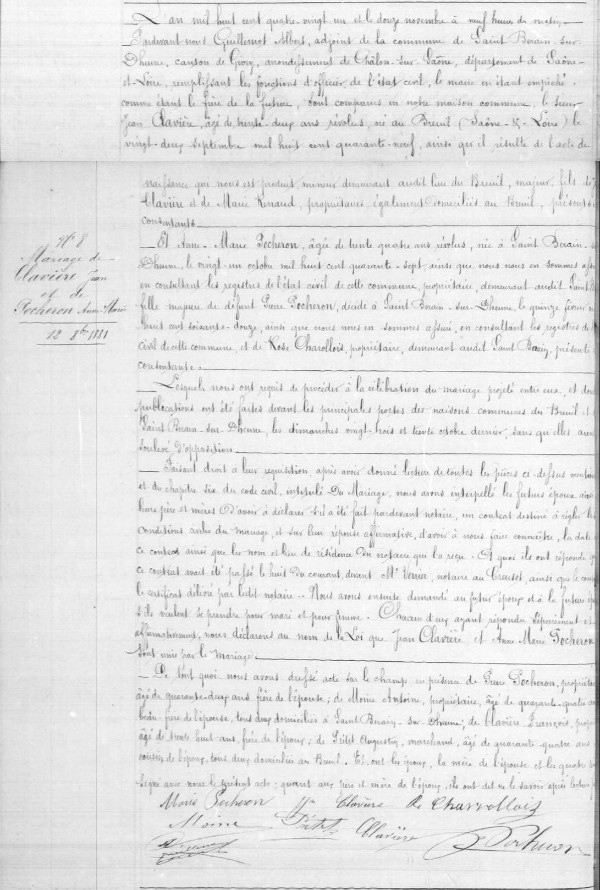 L'an mil huit cent quatre-vingt un et le douze novembre à neuf heures du matin,
Pardevant nous Guillemot Albert, adjoint de la commune de Saint Berain-sur-
Dheune, canton de Givry, arrondissement de Châlon-sur-Saône, département de Saône-
et-Loire, remplissant les fonctions d'officier de l'état civil, le maire en étant empêché
comme étant le frère de la future, sont comparus en notre maison commune, le sieur
Jean Clavière, âgé de trente-deux ans révolus, né au Breuil (Saône-&-Loire) le
vingt-deux septembre mil huit cent quarante-neuf, ainsi qu'il résulte de l'acte de
naissance qui nous est produit, mineur demeurant audit lieu du Breuil, majeur, fils de
Clavière et de Marie Renaud, propriétaires également domiciliés au Breuil, présents
consentants.
N° 8
Mariage de
Clavière Jean
et de
Pocheron Anne-Marie
12 9bre 1881
Et Anne-Marie Pocheron, âgée de trente quatre ans révolus, née à Saint Berain-
Dheune, le vingt-un octobre mil huit cent quarante-sept, ainsi que nous nous en sommes
en consultant les registres de l'état civil de cette commune, propriétaire, demeurant audit Saint
fille majeure de défunt Pierre Pocheron, décédé à Saint Berain-sur-Dheune, le quinze février
huit cent soixante-douze, ainsi que nous nous en sommes assuré, en consultant les registres de
civil de cette commune, et de Rose Charollois, propriétaire, demeurant audit Saint Berain, présente
consentante.
Lesquels nous ont requis de procéder à la célébration du mariage projeté entre eux, et dont
publications ont été faites devant les principales portes des maisons communes du Breuil et
Saint Berain-sur-Dheune, les dimanches vingt-trois et trente octobre dernier, sans qu'elles aient
soulevé d'opposition.
Faisant droit à leur réquisition, après avoir donné lecture de toutes les pièces ci-dessus
et du chapitre six du code civil, intitulé Du Mariage, nous avons interpellé les futurs époux
leurs père et mères d'avoir à déclarer s'il a été fait pardevant notaire, un contrat destiné à régler les
conditions civiles du mariage, et sur leur réponse affirmative, d'avoir à nous faire connaître, la date
ce contrat ainsi que les nom et lieu de résidence du notaire qui l'a reçu. A quoi ils ont répondu
ce contrat avait été passé le huit du courant, devant Me notaire au Creusot, ainsi que le
le certificat délivré par ledit notaire. Nous avons ensuite demandé au futur époux et à la future
s'ils veulent se prendre pour mari et pour femme. Chacun d'eux ayant répondu séparément et
affirmativement, nous déclarons au nom de la Loi que Jean Clavière et Anne-Marie Pocheron
sont unis par le mariage.
De tout quoi nous avons dressé acte sur le champ en présence de Pierre Pocheron, propriétaire
âgé de quarante-deux ans, frère de l'épouse; de Moine Antoine, propriétaire, âgé de quarante-quatre
beau-frère de l'épouse, tous deux domiciliés à Saint Berain-sur-Dheune; de Clavière François,
âgé de trente huit ans, frère de l'époux; de Petit Augustin, marchand, âgé de quarante-quatre ans
cousin de l'époux, tous deux domiciliés au Breuil. Et, ont les époux, la mère de l'épouse et les quatre
signé avec nous le présent acte; quant aux père et mère de l'époux, ils ont dit ne le savoir après lecture
Marie Pocheron Clavière Charrollois
Moine Petit Clavière Pocheron